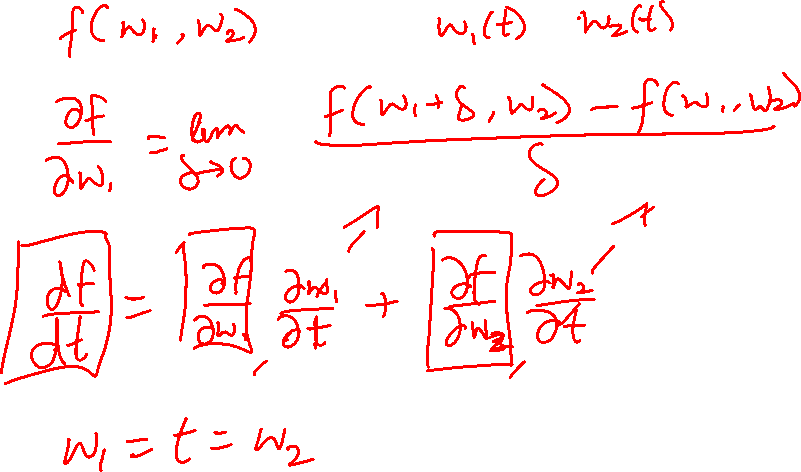 f(w₁, w₂) w₁(t) w₂(t)
∂f/∂w₁ = lim δ→0 (f(w₁+δ, w₂) − f(w₁, w₂))/δ
df/dt = ∂f/∂w₁ ∂w₁/∂t + ∂f/∂w₂ ∂w₂/∂t
w₁ = t = w₂